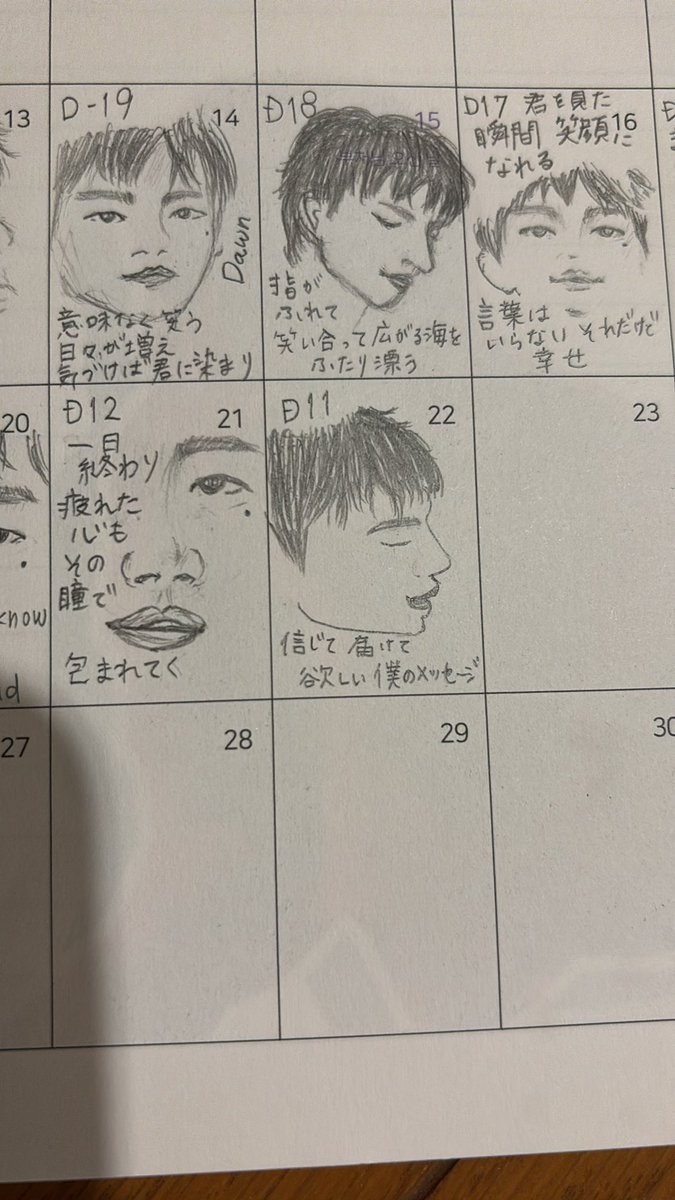 13
D-19
14
Dawn
意味なく笑う
日々が増え
気づけば君に染まり
D18
15
指が
ふれて
笑い合って広がる海を
ふたり漂う
D17 君を見た
瞬間 笑顔に
16
なれる
言葉は
いらない それだけで
幸せ
20
know
D12
21
一日
終わり
疲れた
心も
その
瞳で
包まれてく
D11
22
信じて 届けて
欲しい 僕のメッセージ
23
27
28
29
30